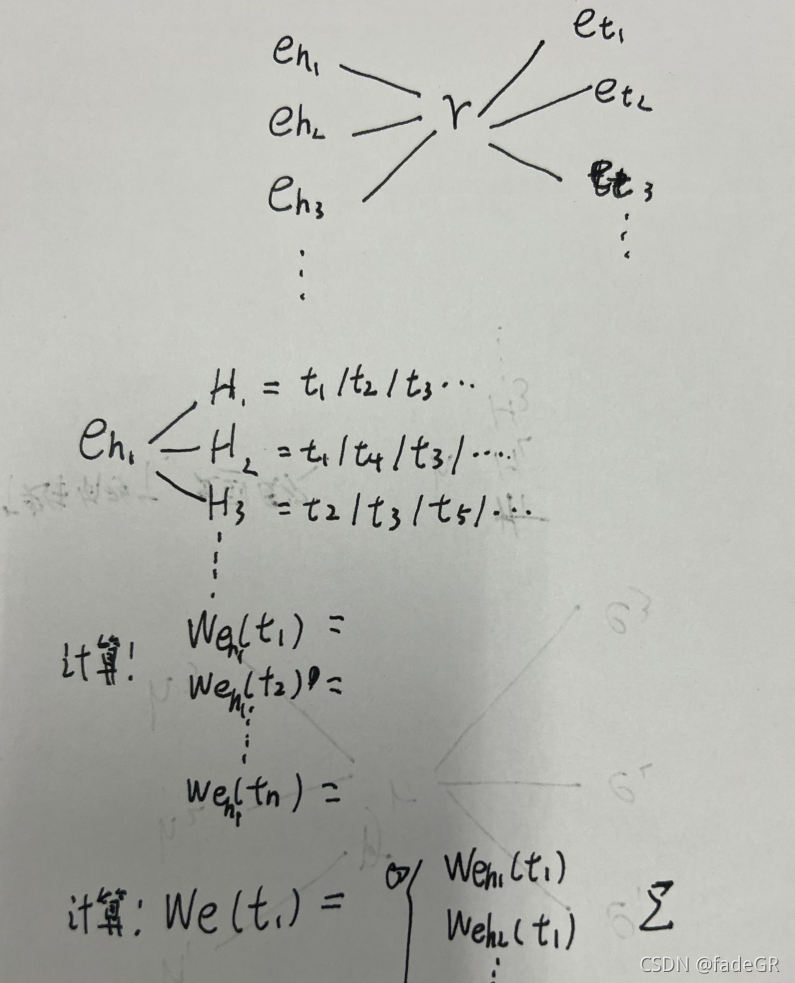 eh₁ et₁
eh₂ r et₂
eh₃ et₃
⋮ ⋮
eh₁ H₁ = t₁/t₂/t₃...
H₂ = t₁/t₄/t₃/....
H₃ = t₂/t₃/t₅/...
⋮
计算! Weh₁(t₁) =
Weh₁(t₂) =
⋮
Weh₁(tn) =
计算: We(t₁) = Weh₁(t₁) Σ
Weh₂(t₁)
⋮
CSDN @fadeGR